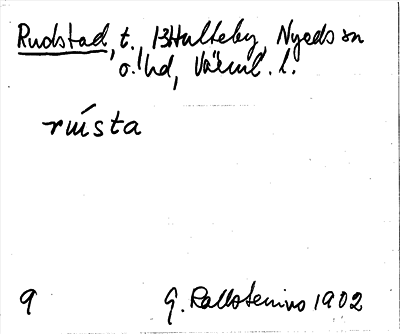 Rudstad, t., B Hulteby, Nyeds sn
o. hd, Värml. l.
rųista
9 G. Kallstenius 1902